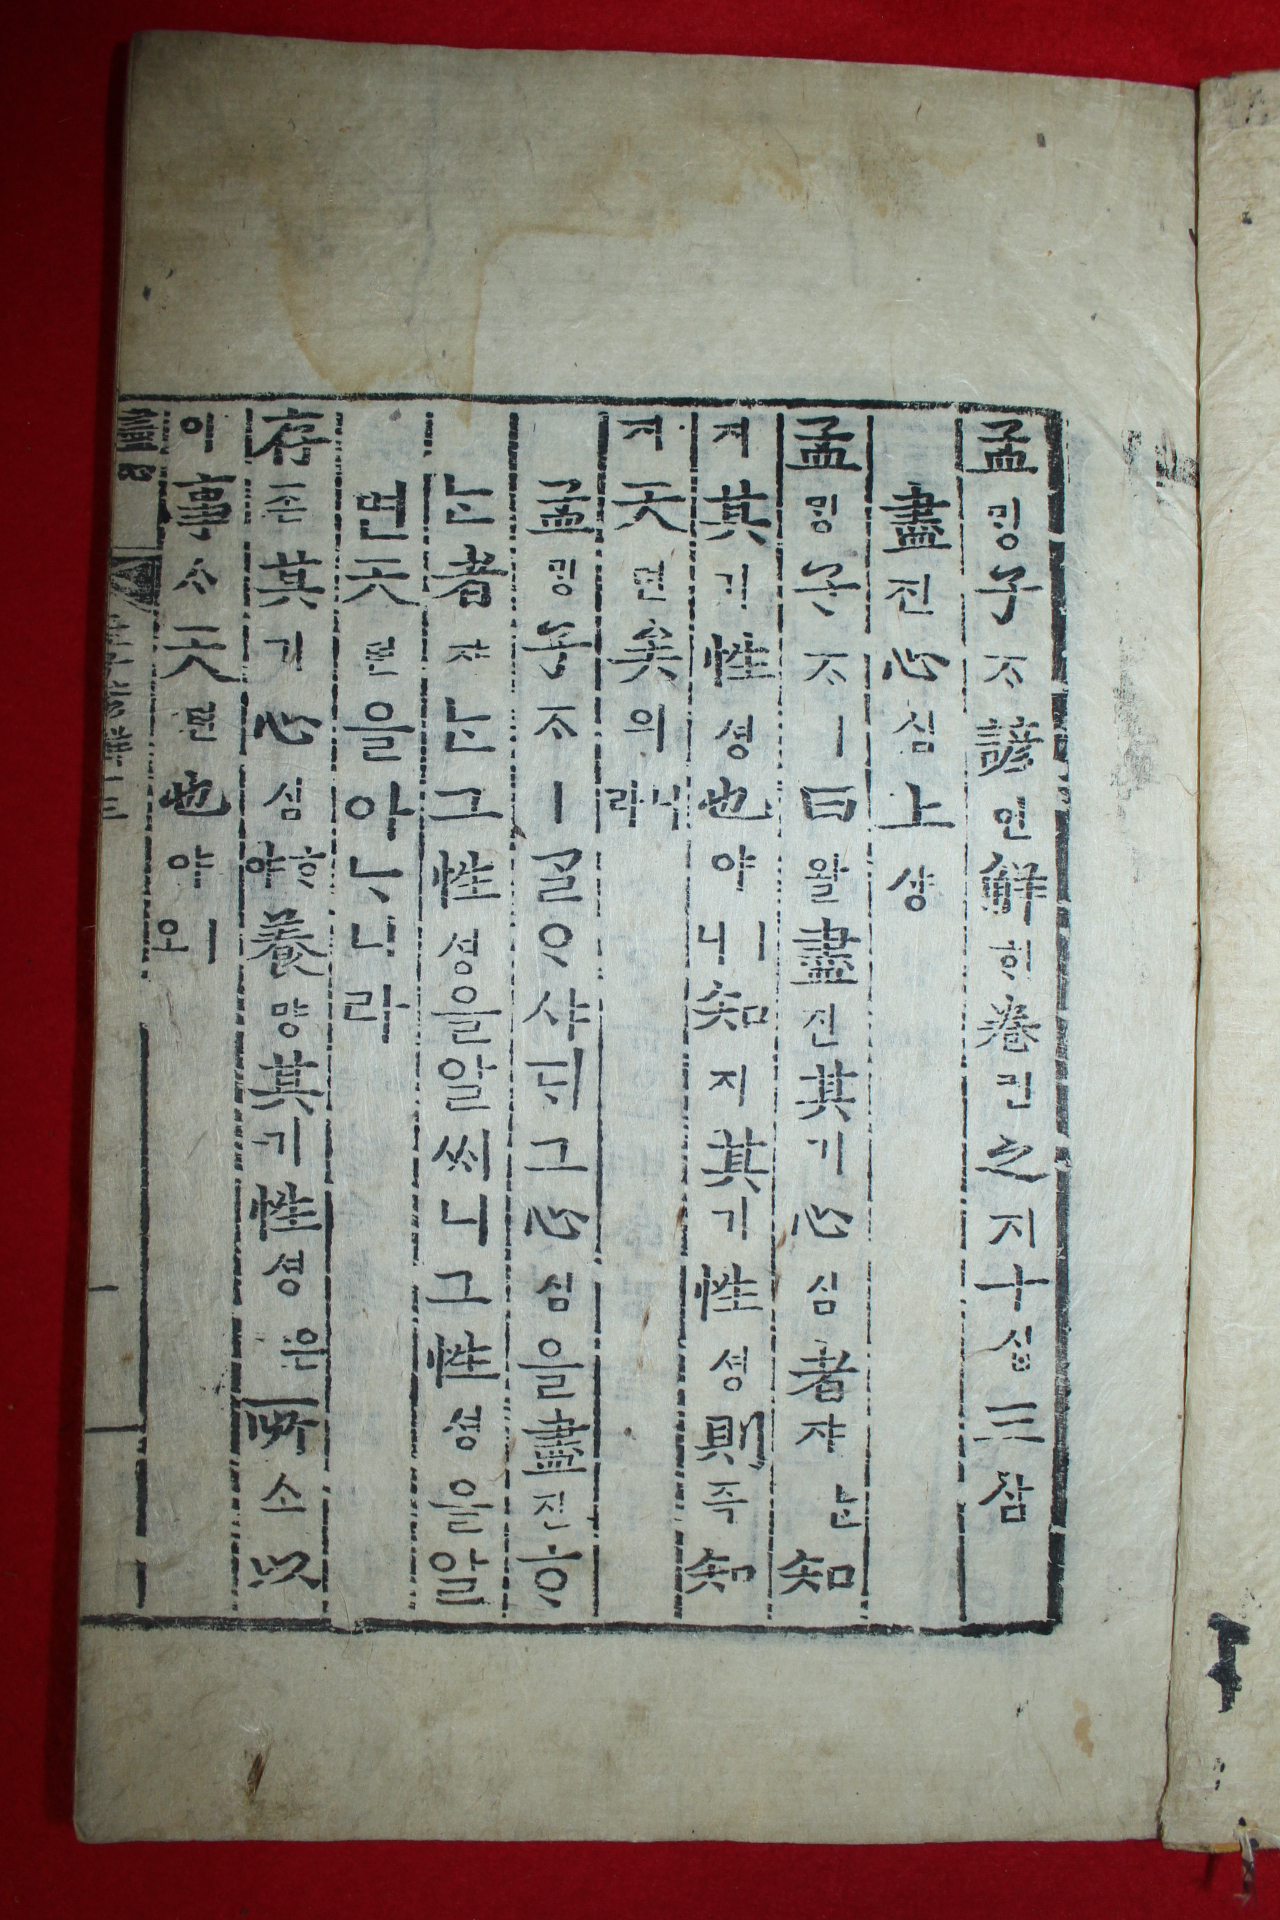 孟ᄆᆡᆼ子ᄌᆞ諺언解ᄒᆡ卷권之지十십三삼
盡진心심上샹
孟ᄆᆡᆼ子ᄌᆞㅣ曰왈盡진其기心심者쟈ᄂᆞᆫ知
지其기性셩也야ㅣ니知지其기性셩則즉知
지天텬矣의니라
孟ᄆᆡᆼ子ᄌᆞㅣᄀᆞᆯᄋᆞ샤ᄃᆡ그心심을盡진ᄒᆞ
ᄂᆞᆫ者쟈ᄂᆞᆫ그性셩을알씨니그性셩을알
면天텬을아ᄂᆞ니라
存존其기心심ᄒᆞ야養양其기性셩은所소以
이事ᄉᆞ天텬也야ㅣ오
孟子諺解十三